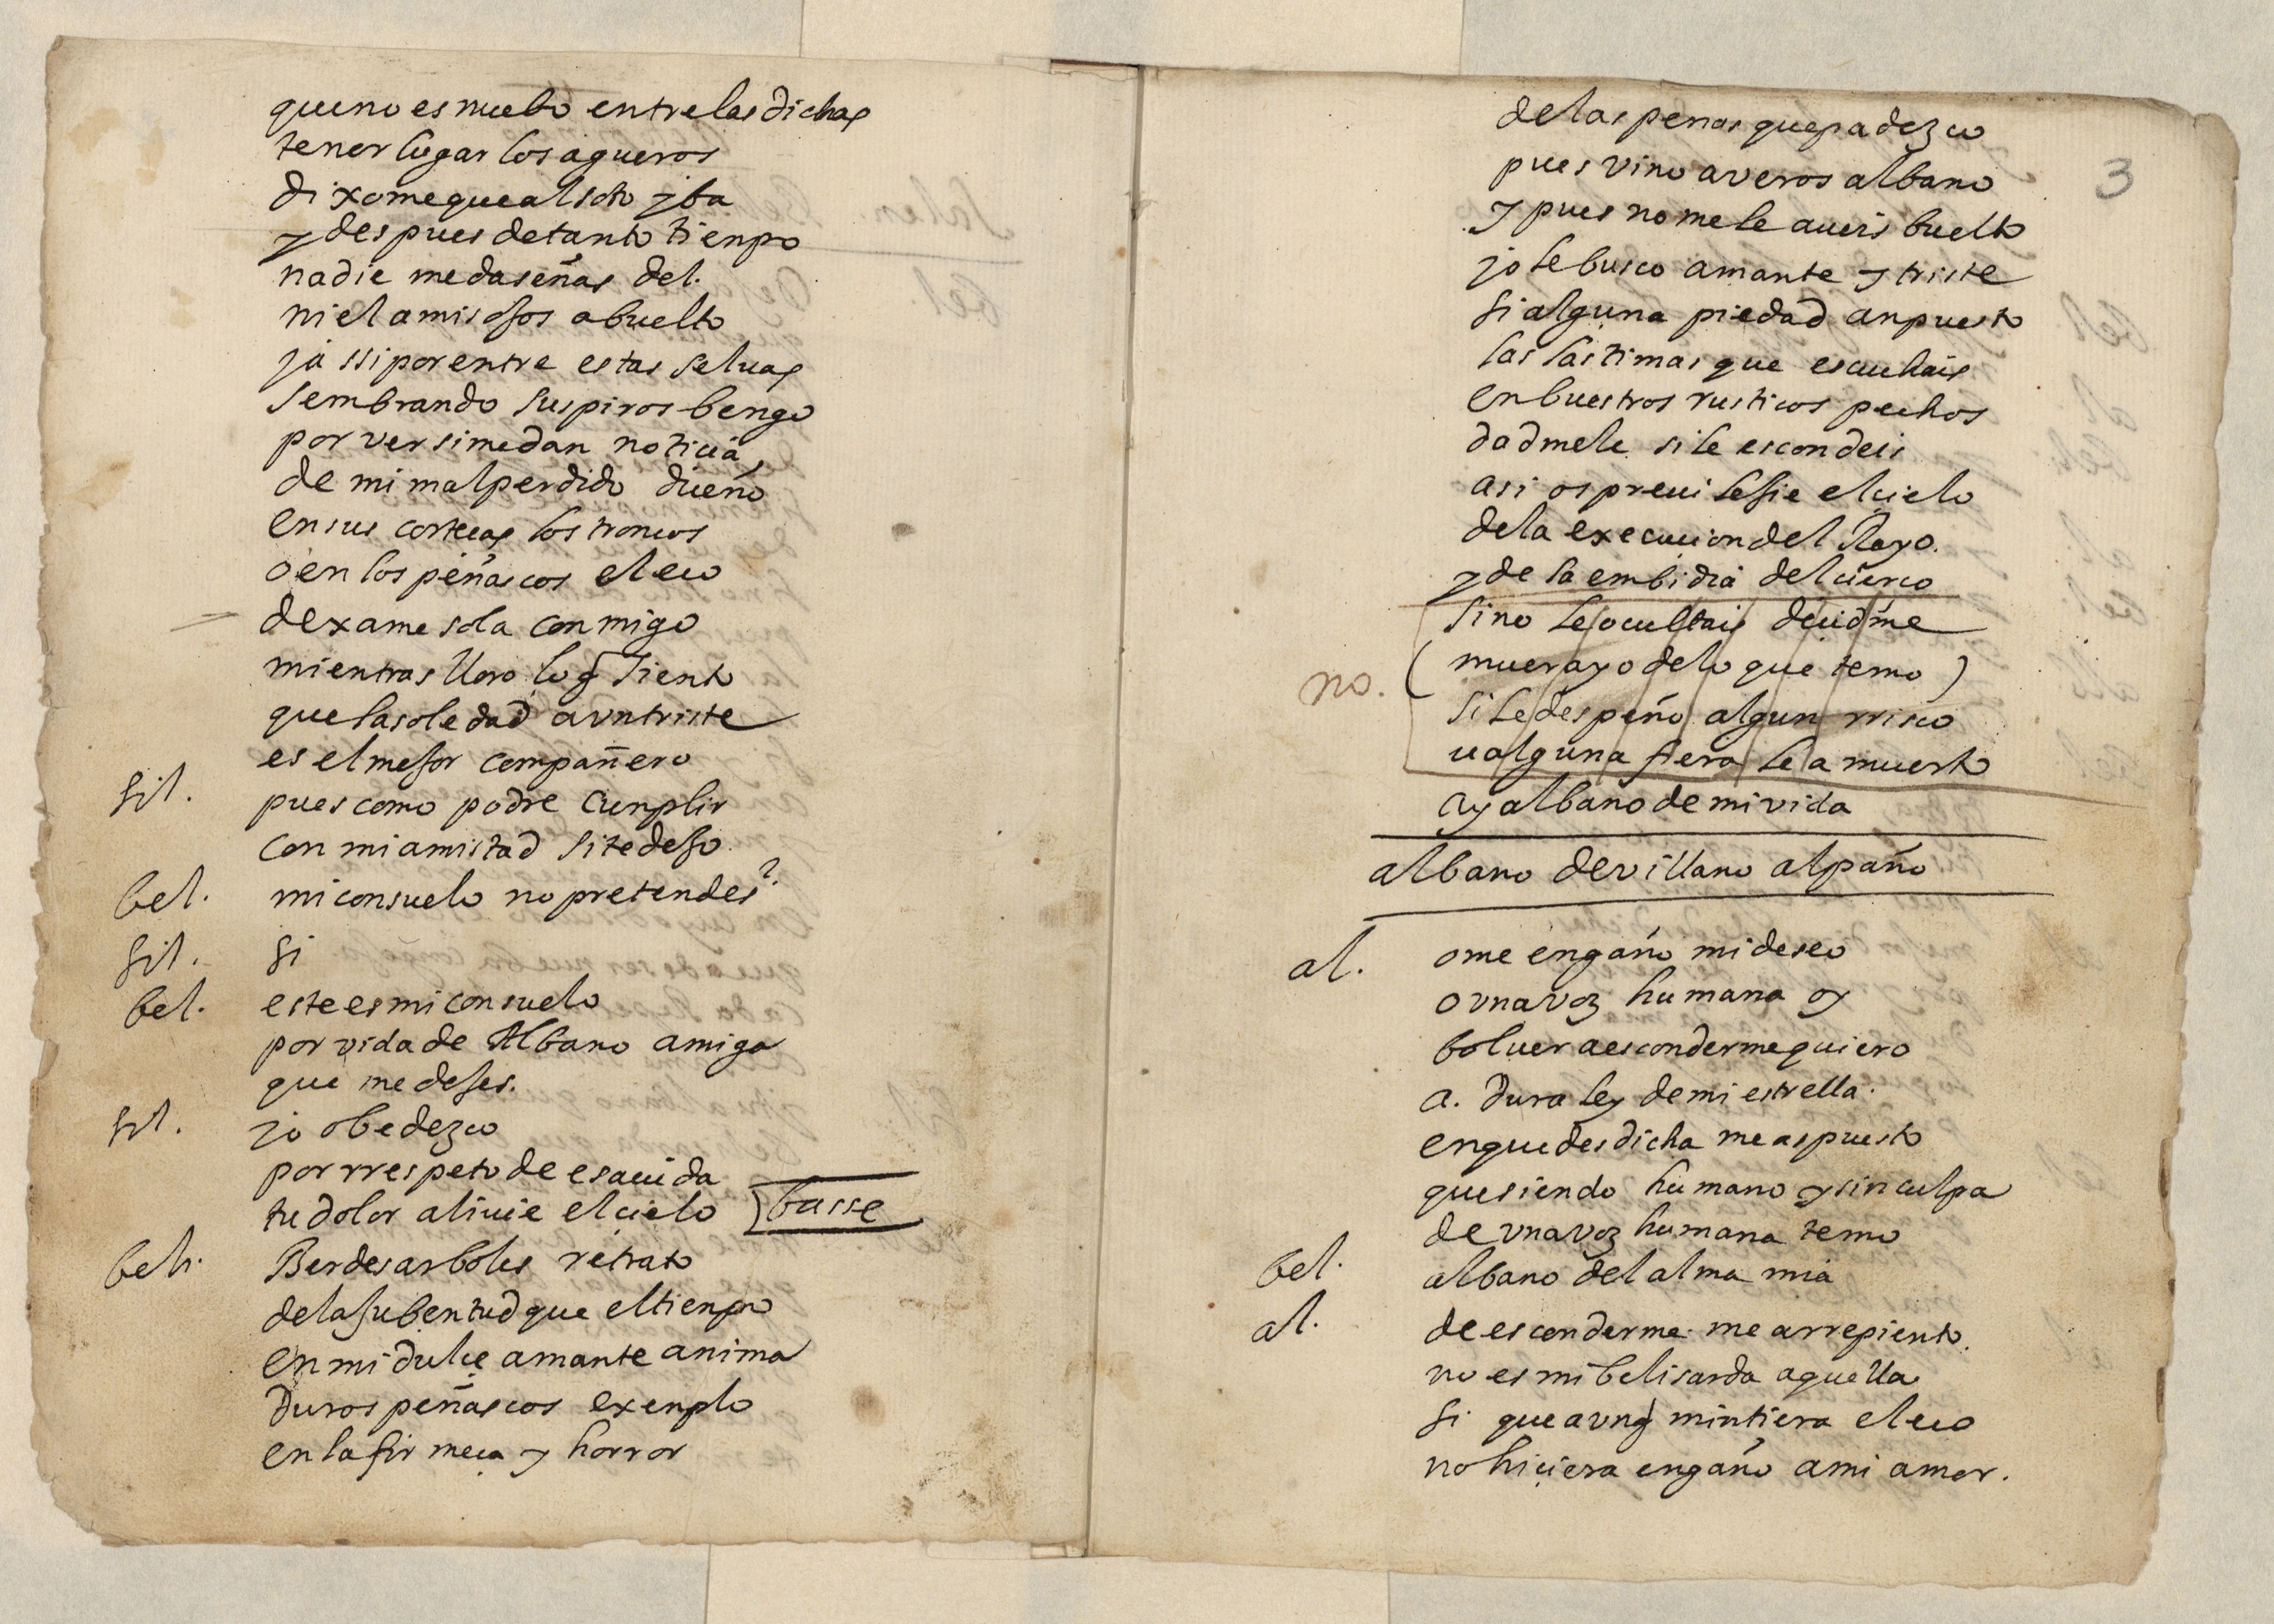 que no es nuebo entre las dichas
tener lugar los agueros
dixome que al soto yba
y despues de tanto tienpo
nadie me da señas del.
ni el a mis ojos a buelto
ja ssi por entre estas seluas
sembrando suspiros bengo
por ver si me dan noticia
de mi mal perdido dueño
en sus corteças los troncos
o en los peñascos el eco
dexame sola conmigo
mientras lloro lo q siento
que la soledad a vn triste
es el mejor compañero
sil. pues como podre cunplir
con mi amistad si te dejo.
bel. mi consuelo no pretendes?
sil. si
bel. este es mi consuelo
por vida de Albano amiga
que me dejes.
sil. jo obedezco
por rrespeto de esa uida
tu dolor aliuie el cielo base
beli. Berdes arboles retrato
de la jubentud que el tienpo
en mi dulçe amante anima
duros peñascos exenplo
en la firmeça y horror
3
de las penas que padezco
pues vino a veros albano
y pues no me le aueis buelto
jo le busco amante y triste
si alguna piedad an puesto
las lastimas que escuchais
en buestros rusticos pechos
dadmele si le escondeis
asi os preuilejie el cielo
de la execucion del Rayo.
y de la embidia del cierço
si no le ocultais deçidme
no. (muera yo de lo que temo)
si le despeño algun rrisco
u alguna fiera le a muerto
ay albano de mi vida
albano de villano al paño
al. o me engaño mi deseo
o vna voz humana oy
boluer a esconderme quiero
a. dura ley de mi estrella.
en que desdicha me as puesto
que siendo humano y sin culpa
de vna voz humana temo
bel. albano del alma mia
al. de esconderme me arrepiento.
no es mi belisarda aquella
si que avnq mintiera el eco
no hiçiera engaño a mi amor.